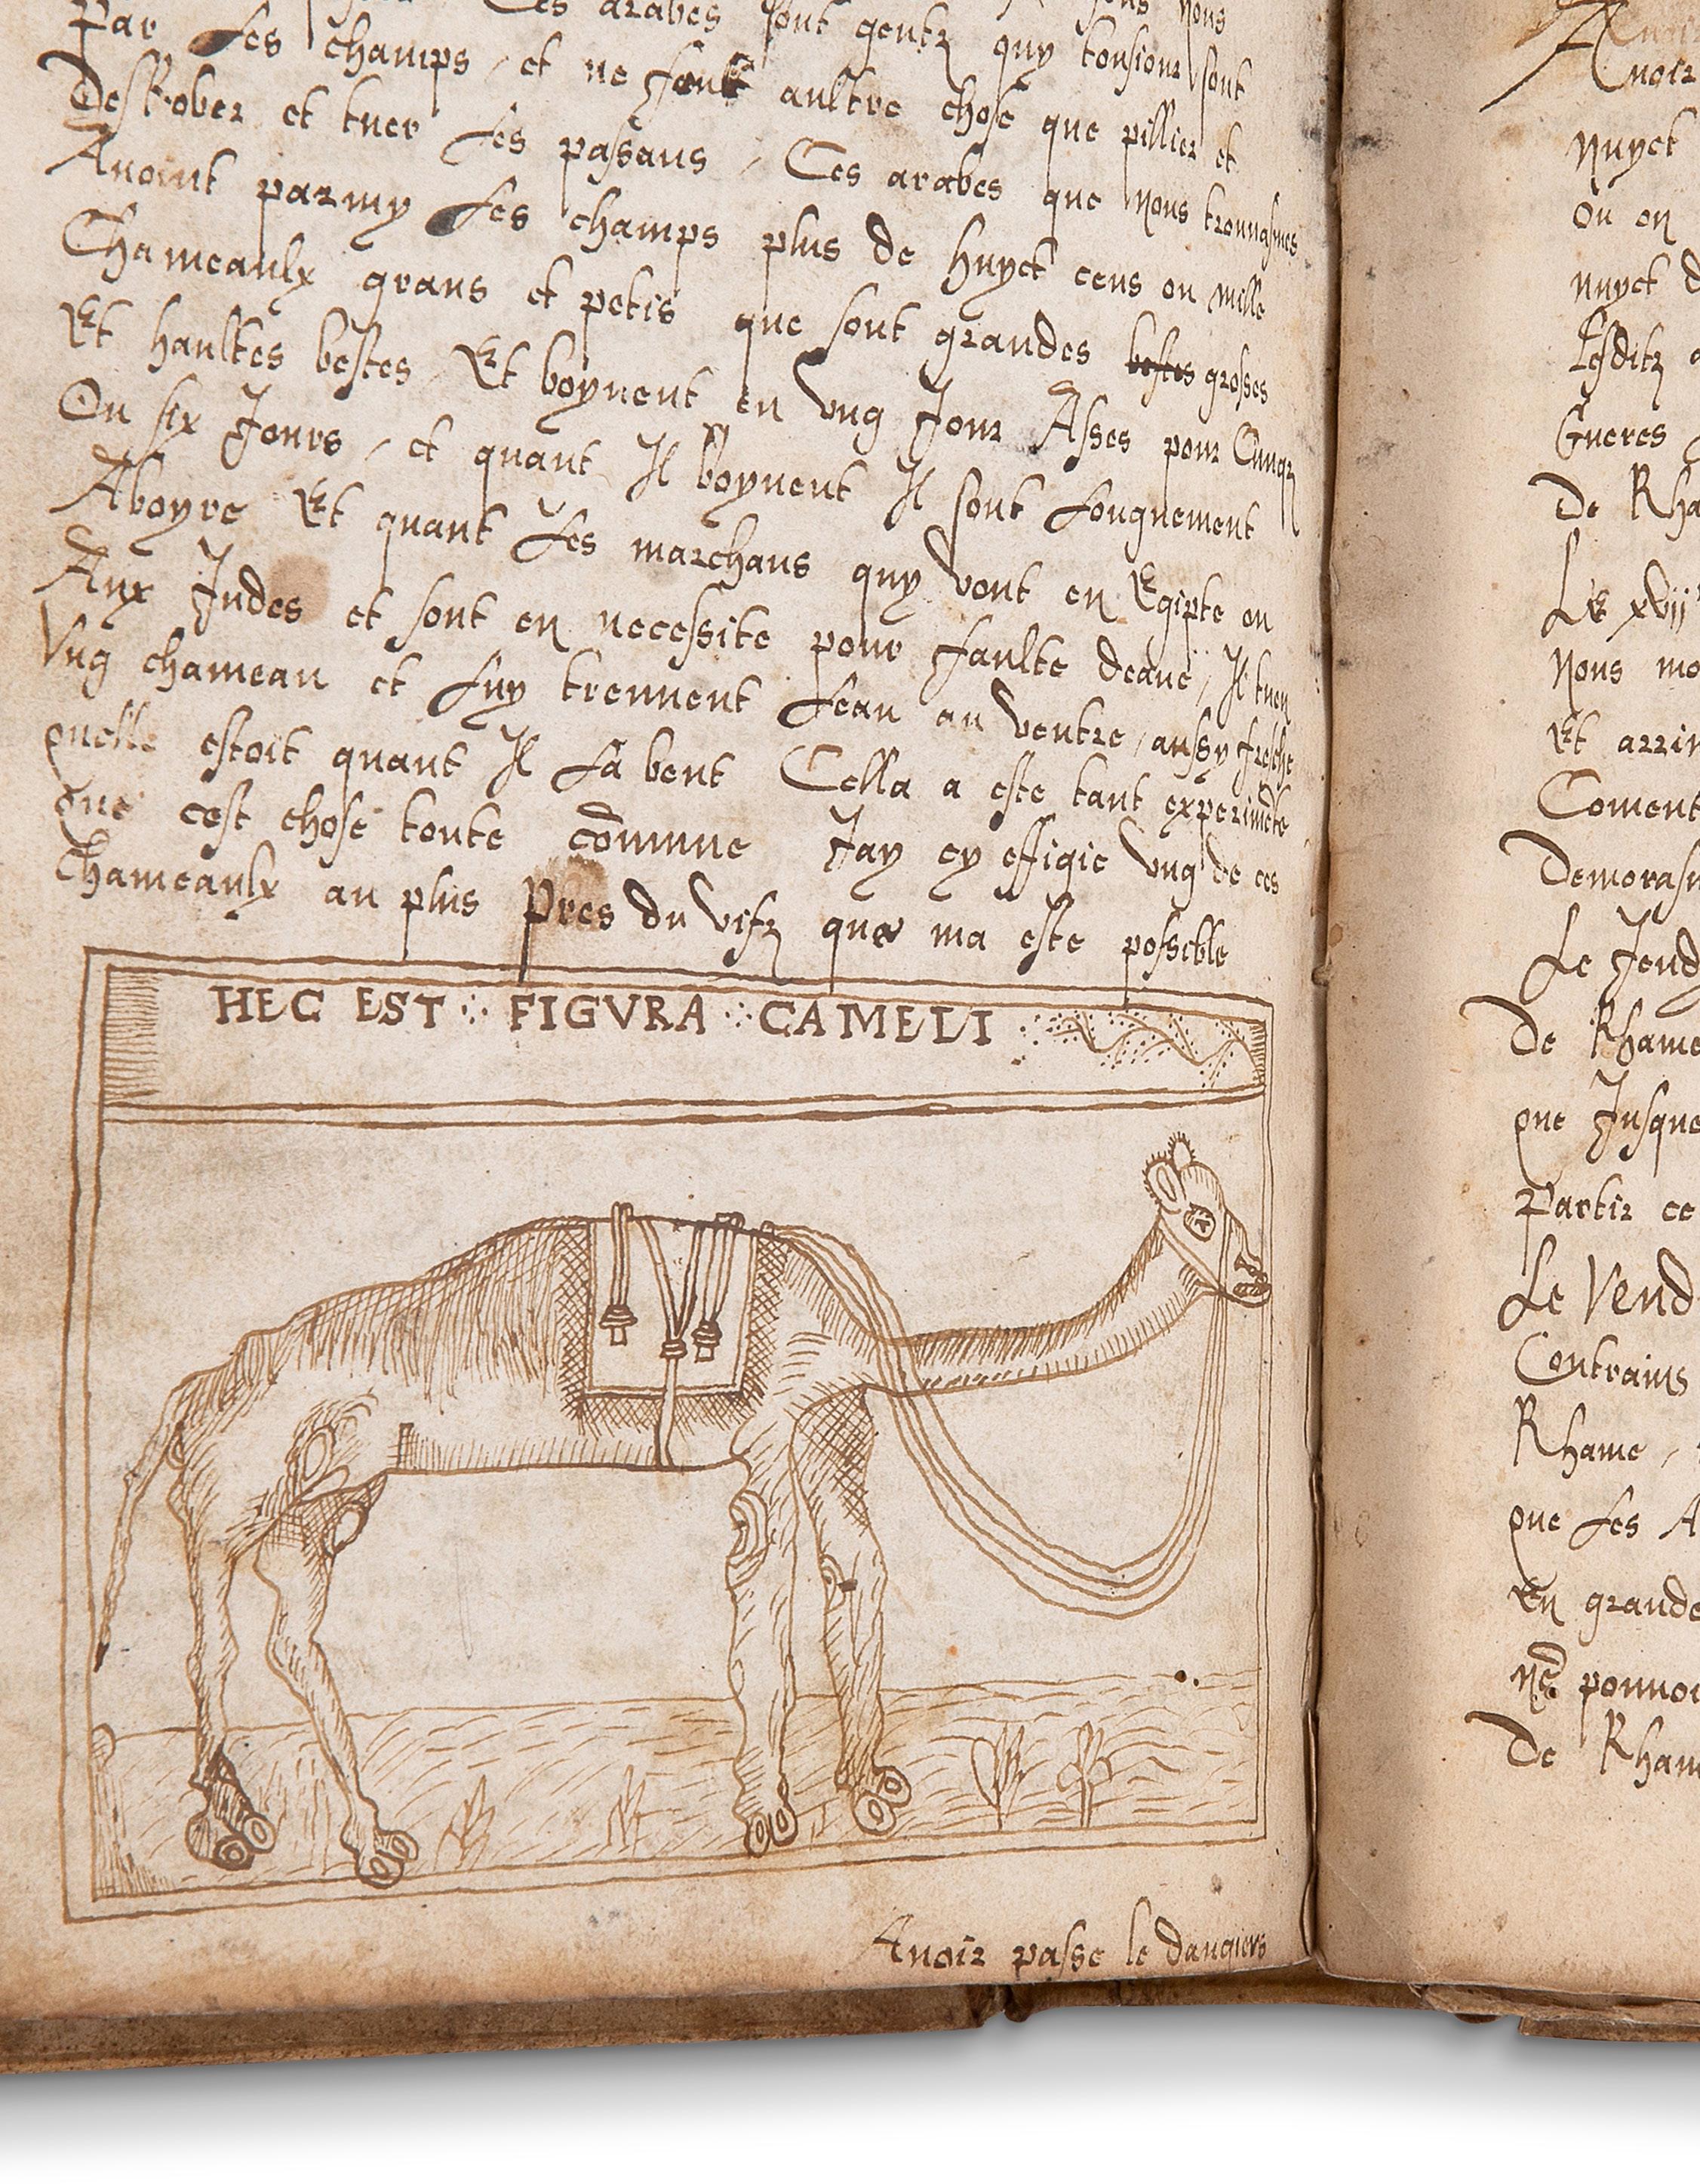 Ces arabes sont gentz quy tousiour sont
Par Les champs, et ne font aultre chose que pillier et
Desrober et tuer Les passans, Ces arabes que nous trouuasmes
Auoint parmy Les champs plus de huyct cens ou mille
Chameaulx grans et petis que sont grandes bestes grosses
Et haultes bestes, Et boyuent en vng Jour Asses pour Cinqz
Ou six Jours, et quant Il boyuent Il sont Longuement
Aboyre Et quant Les marchans quy vont en Egipte ou
Aux Indes et sont en necessite pour faulte deaue, Il tuen
Vng chameau et Luy treuuent Leau au ventre, aussy fresche
quelle estoit quant Il La beut Cella a este tant experimēte
que cest chose toute cōmune Jay cy effigie vng de ces
Chameaulx au plus Pres du vifz que ma este possible
HEC EST FIGVRA CAMELI
Auoir passe le dangiers
noir
nuyct
Ou on
nuyct d
Lesditz
Gueres
De Rha
Le xvij
Nous mo
Et arriu
Coment
Demoras
Le Jeud
De Rhame
que Jusque
Partir ce
Le Vend
Contrains
Rhame,
que Les A
En grande
pouuoi
De Rham